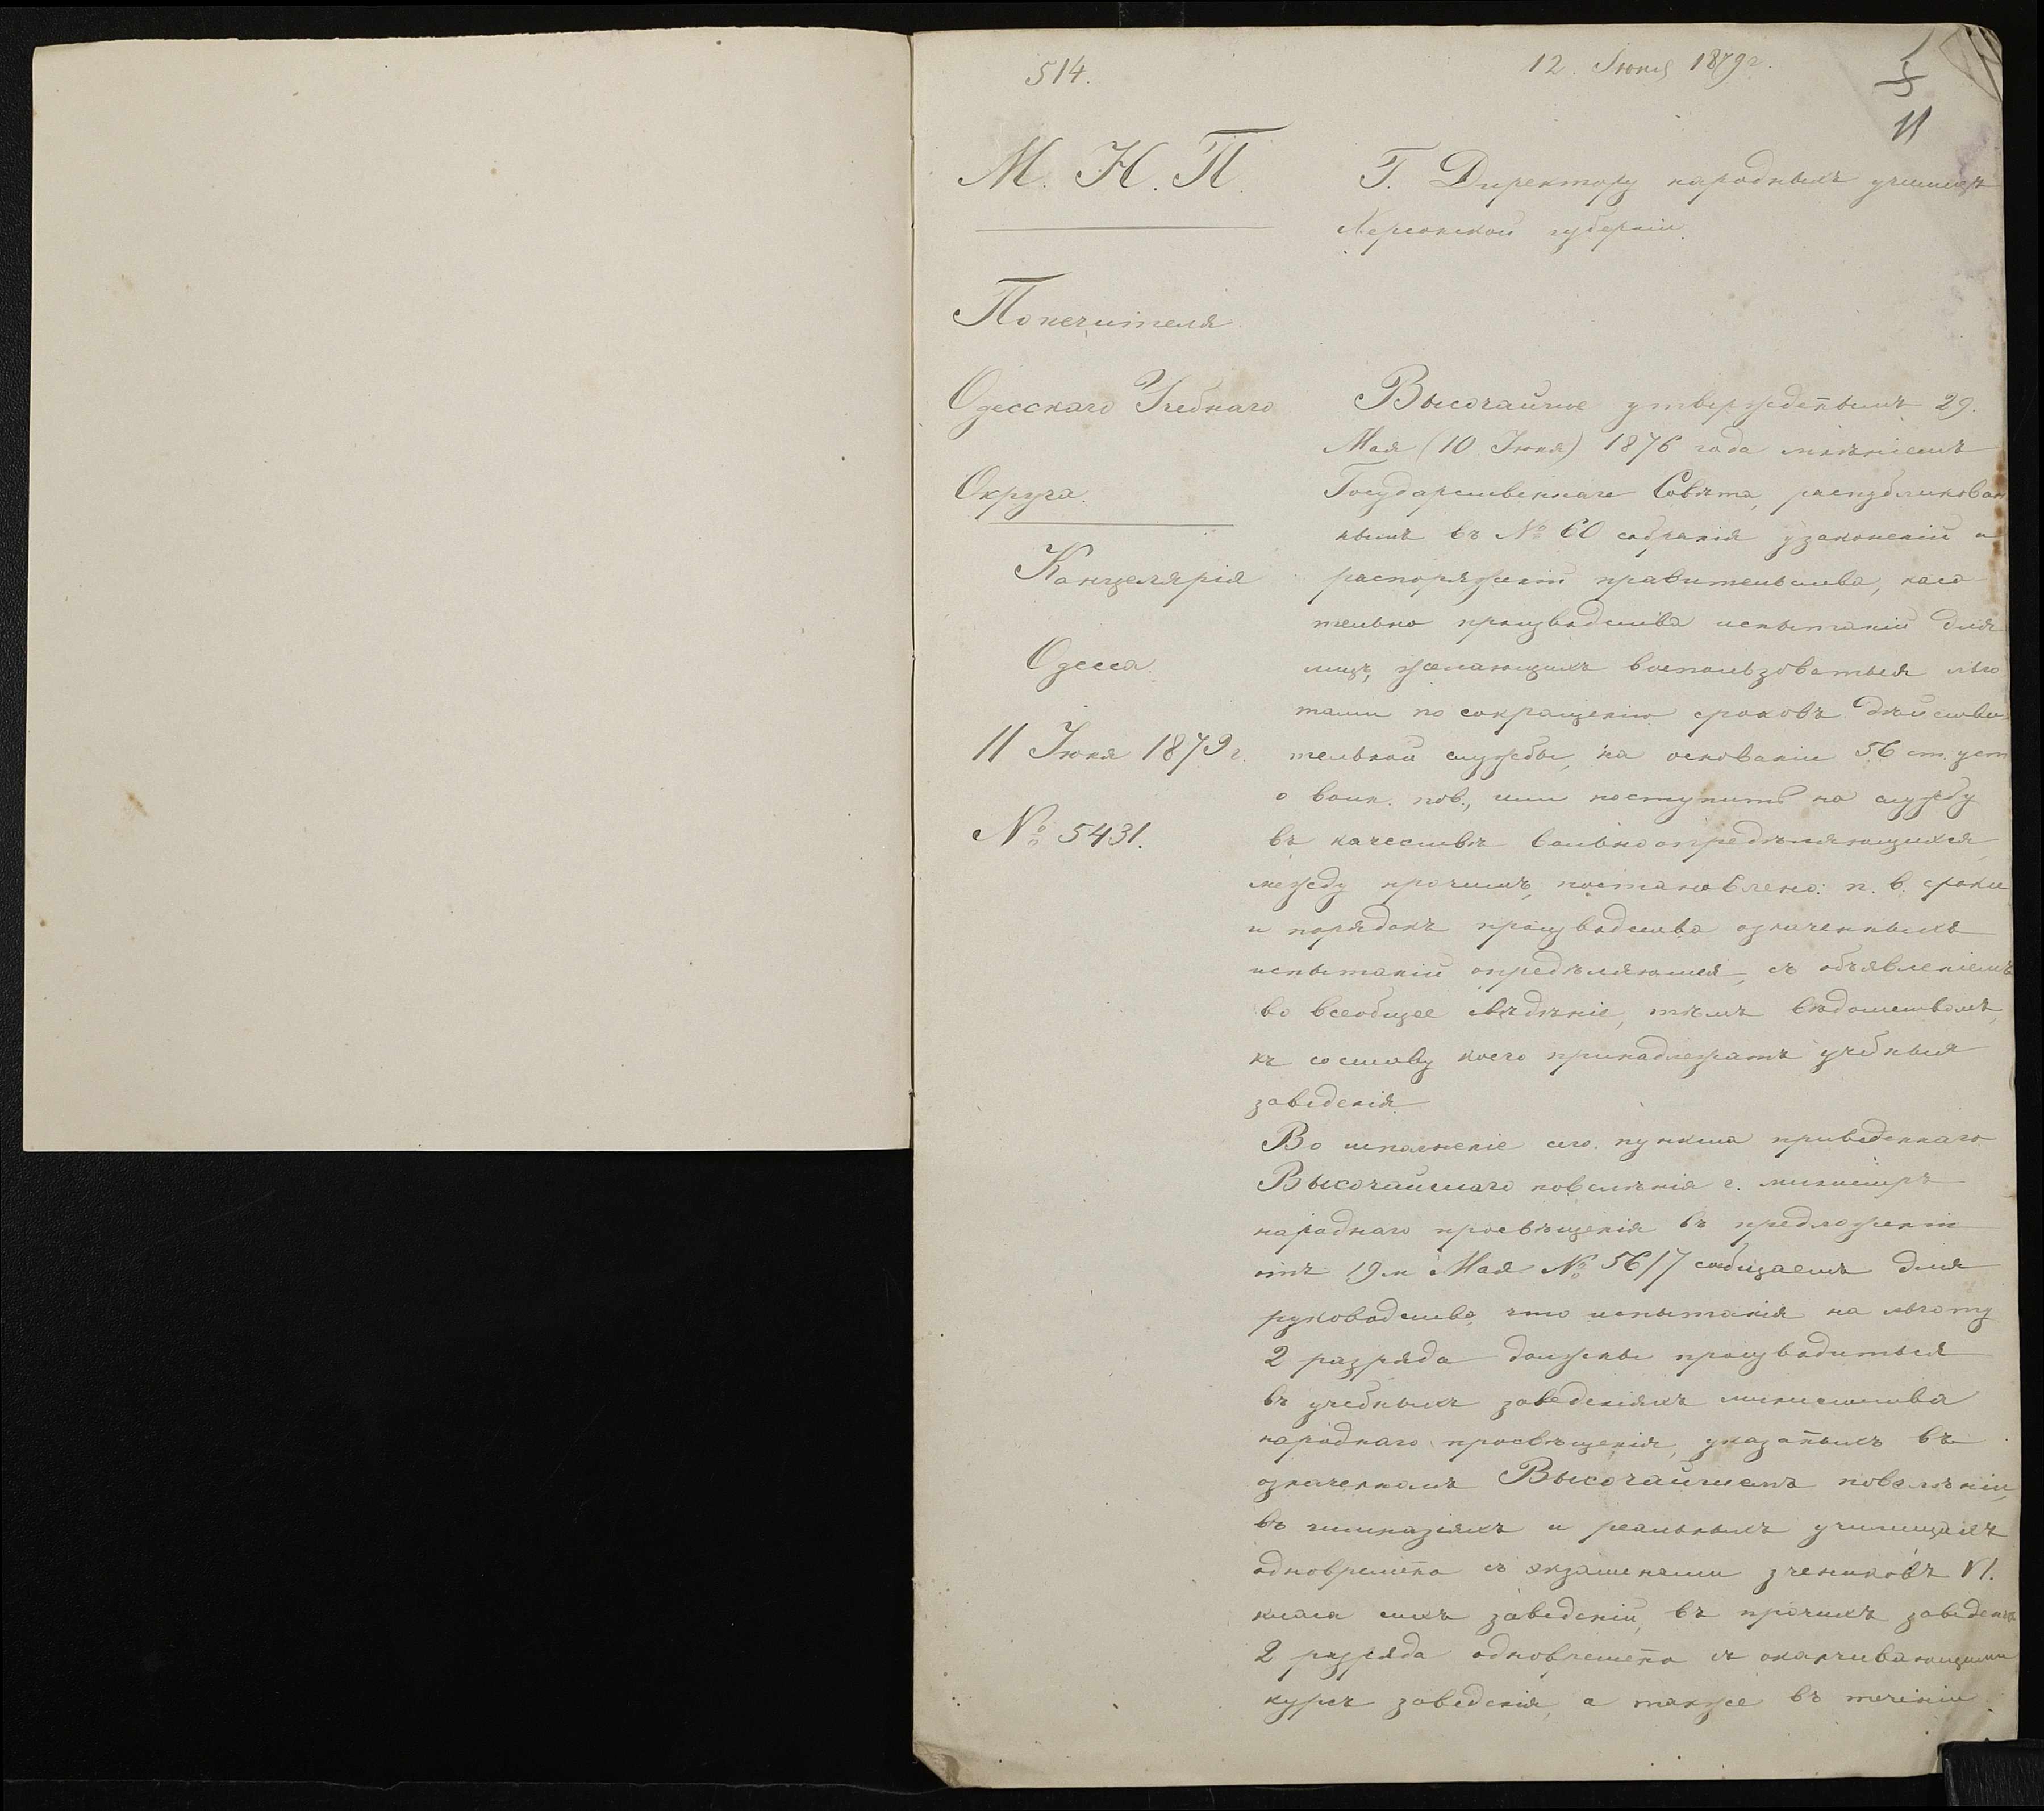 514.
12. Іюня 1879 г.
11
М. Н. П.
Попечителя
Одесскаго Учебнаго
Округа.
Канцелярія
Одесса.
11 Іюня 1879 г.
№ 5431.
Г. Директору народныхъ училищъ
Херсонской губерніи.
Высочайше утвержден̅ымъ 29.
Мая (10 Іюня) 1876 года мнѣніемъ
Государственнаго Совѣта, распубликован
нымъ въ № 60 собранія узаконеній и
распоряженій правительства, каса-
тельно производства испытаній для
лицъ, желающихъ воспользоваться льго
тами по сокращенію сроковъ дѣйстви
тельной службы, на основаніи 56 ст. уст
о воин. пов., или поступить на службу
въ качествѣ вольноопредѣляющихся,
между прочимъ, постановлено: п. в. сроки
и порядокъ производства означенныхъ
испытаній опредѣляются, съ объявленіемъ
во всеобщее свѣдѣніе, тѣмъ вѣдомствомъ,
къ составу коего принадлежатъ учебныя
заведенія.
Во исполненіе сего пункта приведеннаго
Высочайшаго повелѣнія г. министръ
народнаго просвѣщенія въ предложеніи
отъ 19 м Мая № 5617 сообщаетъ для
руководства, что испытанія на льготу
2 разряда должны производиться
въ учебныхъ заведеніяхъ министства
народнаго просвѣщенія, указан̅ыхъ въ
означенномъ Высочайшемъ повелѣніи,
въ гимназіяхъ и реальныхъ училищахъ
одновремен̅о съ экзаменами учениковъ VI.
класа сихъ заведеній, въ прочихъ заведенія
2 разряда одновремен̅о съ оканчивающими
курсъ заведенія, а также въ теченіи